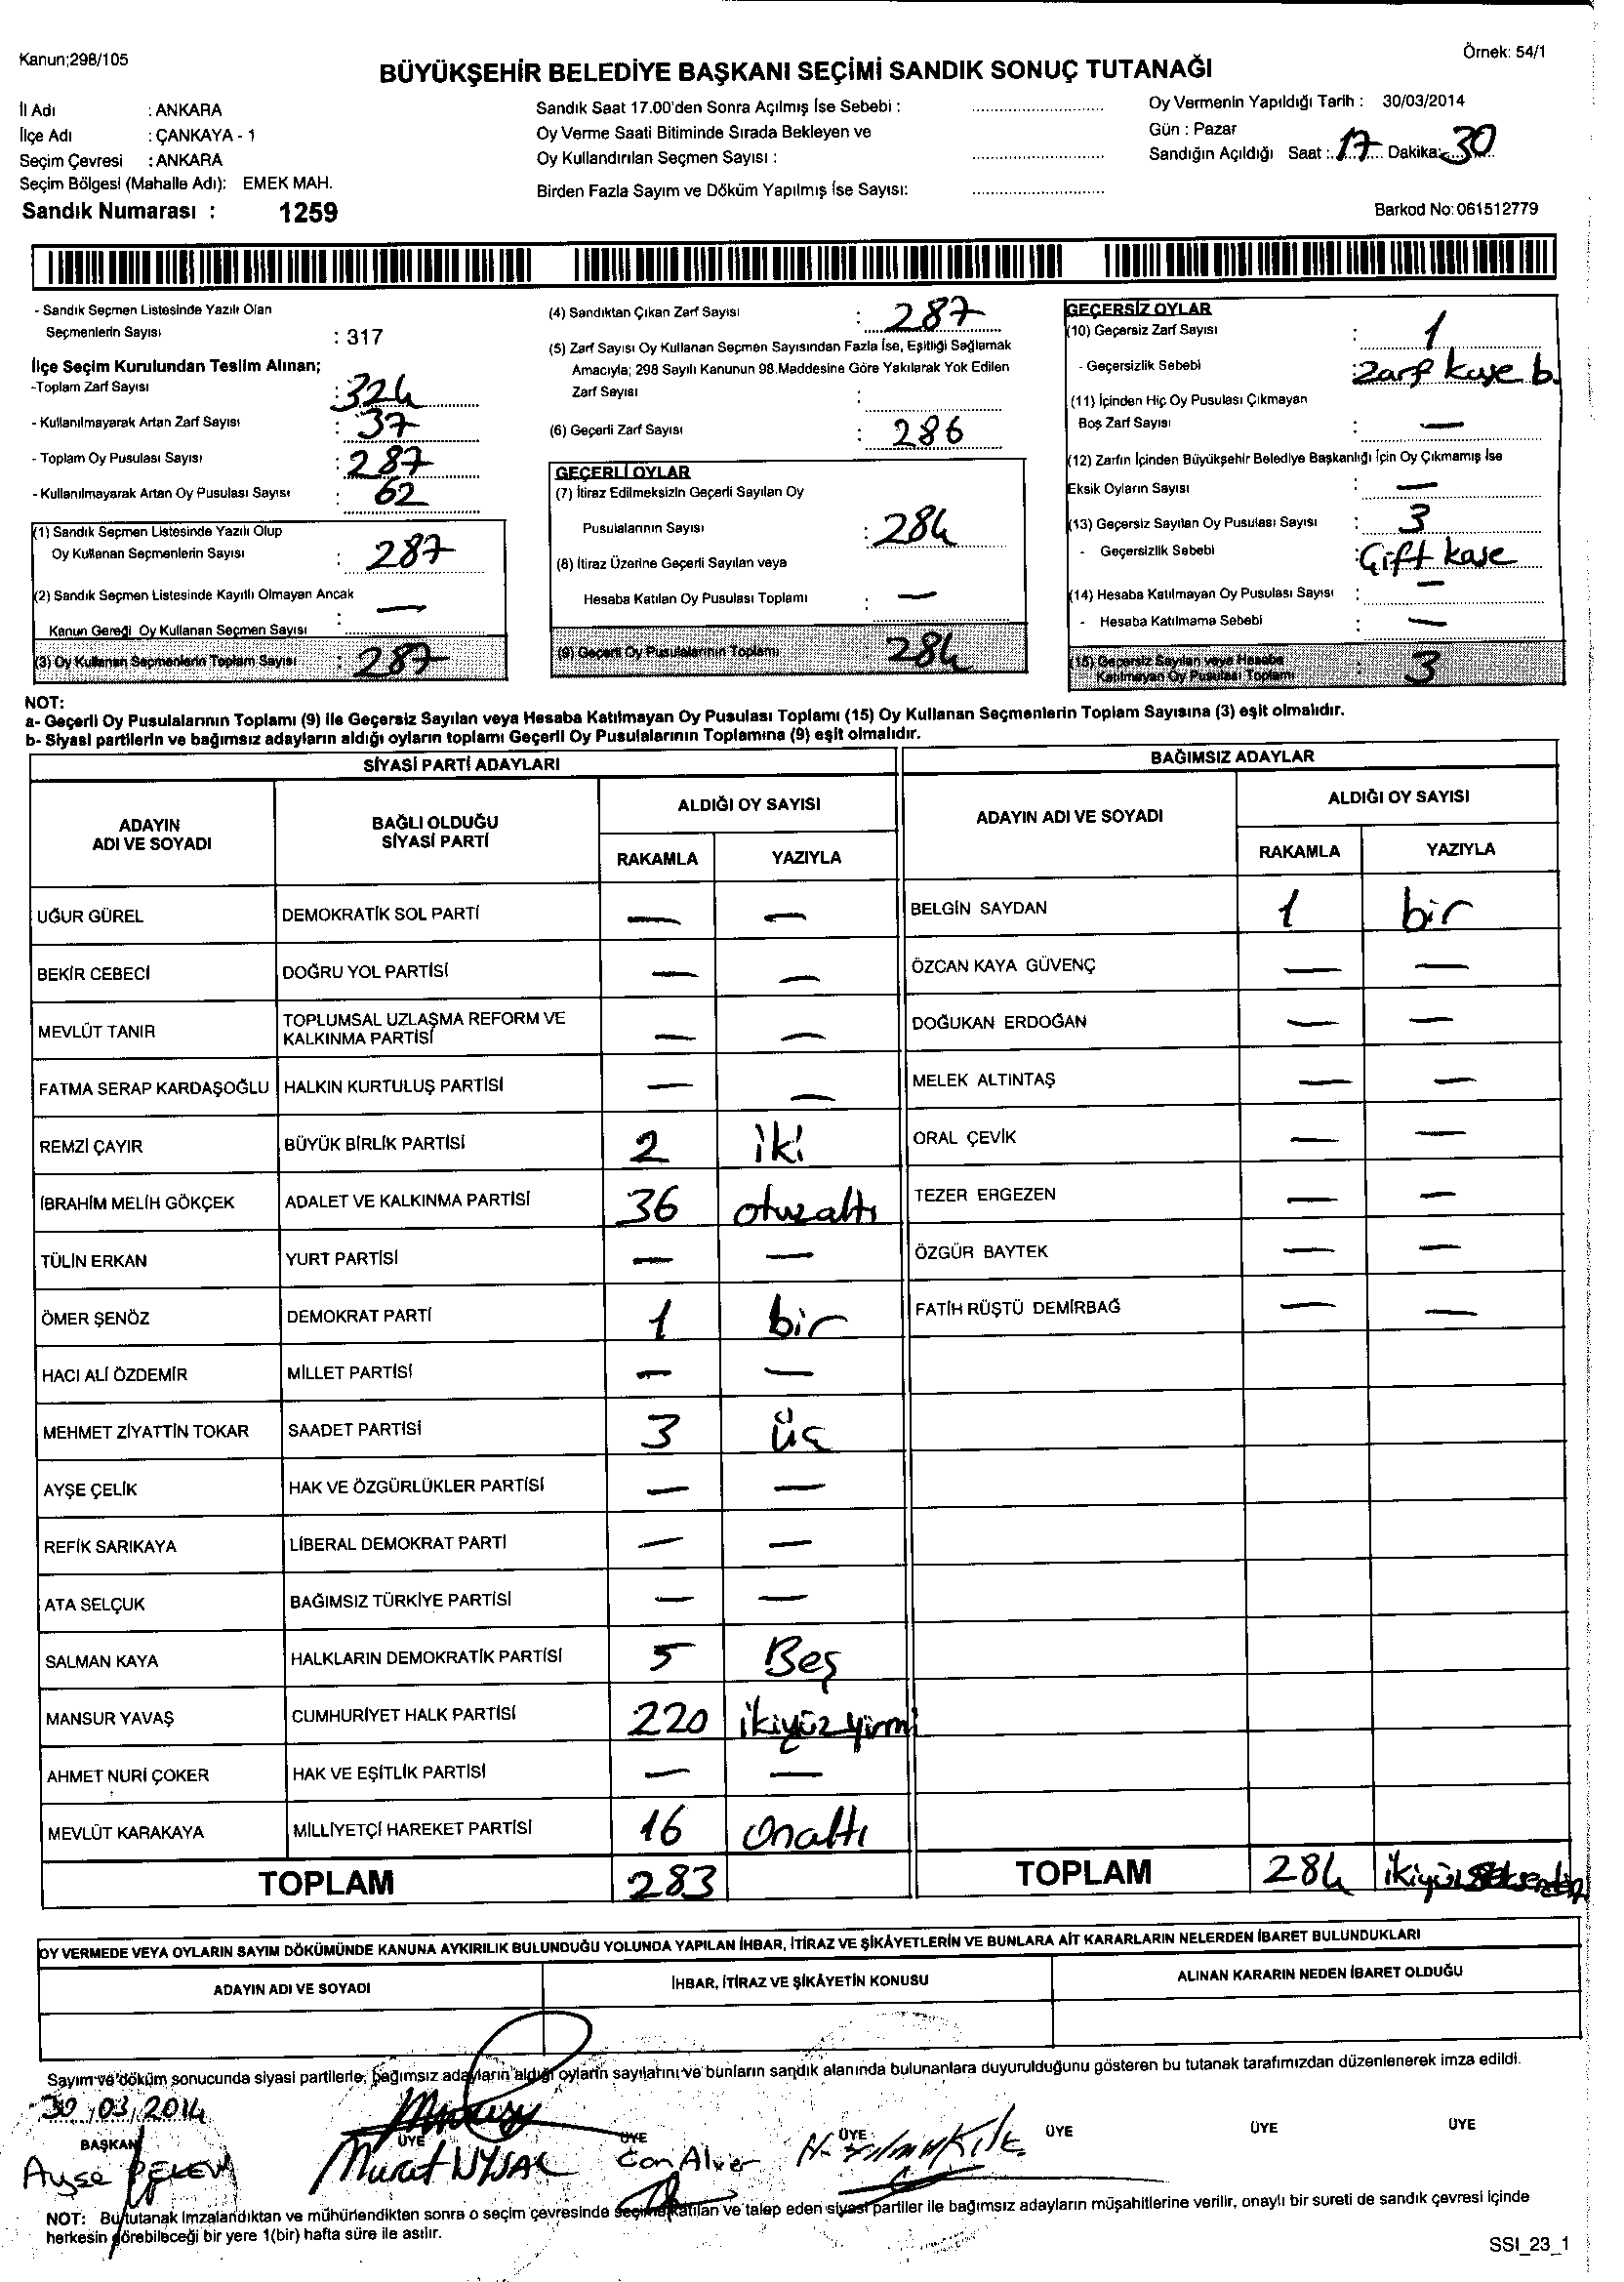 Kanun;298/105
Örnek: 54/1
BÜYÜKŞEHİR BELEDİYE BAŞKANI SEÇİMİ SANDIK SONUÇ TUTANAĞI
İl Adı : ANKARA
İlçe Adı : ÇANKAYA - 1
Seçim Çevresi : ANKARA
Seçim Bölgesi (Mahalle Adı): EMEK MAH.
Sandık Numarası : 1259
Sandık Saat 17.00'den Sonra Açılmış İse Sebebi :
Oy Verme Saati Bitiminde Sırada Bekleyen ve
Oy Kullandırılan Seçmen Sayısı :
Birden Fazla Sayım ve Döküm Yapılmış İse Sayısı:
Oy Vermenin Yapıldığı Tarih : 30/03/2014
Gün : Pazar
Sandığın Açıldığı Saat : 17 Dakika: 30
Barkod No: 061512779
- Sandık Seçmen Listesinde Yazılı Olan
Seçmenlerin Sayısı : 317
İlçe Seçim Kurulundan Teslim Alınan;
-Toplam Zarf Sayısı : 324
- Kullanılmayarak Artan Zarf Sayısı : 37
- Toplam Oy Pusulası Sayısı : 287
- Kullanılmayarak Artan Oy Pusulası Sayısı : 62
(1) Sandık Seçmen Listesinde Yazılı Olup
Oy Kullanan Seçmenlerin Sayısı : 287
(2) Sandık Seçmen Listesinde Kayıtlı Olmayan Ancak
Kanun Gereği Oy Kullanan Seçmen Sayısı : —
(3) Oy Kullanan Seçmenlerin Toplam Sayısı : 287
(4) Sandıktan Çıkan Zarf Sayısı : 287
(5) Zarf Sayısı Oy Kullanan Seçmen Sayısından Fazla İse, Eşitliği Sağlamak
Amacıyla; 298 Sayılı Kanunun 98.Maddesine Göre Yakılarak Yok Edilen
Zarf Sayısı :
(6) Geçerli Zarf Sayısı : 286
GEÇERLİ OYLAR
(7) İtiraz Edilmeksizin Geçerli Sayılan Oy
Pusulalarının Sayısı : 284
(8) İtiraz Üzerine Geçerli Sayılan veya
Hesaba Katılan Oy Pusulası Toplamı : —
(9) Geçerli Oy Pusulalarının Toplamı : 284
GEÇERSİZ OYLAR
(10) Geçersiz Zarf Sayısı : 1
- Geçersizlik Sebebi : Zarf kaşe b.
(11) İçinden Hiç Oy Pusulası Çıkmayan
Boş Zarf Sayısı : —
(12) Zarfın İçinden Büyükşehir Belediye Başkanlığı İçin Oy Çıkmamış İse
Eksik Oyların Sayısı : —
(13) Geçersiz Sayılan Oy Pusulası Sayısı : 3
- Geçersizlik Sebebi : Çift kaşe
(14) Hesaba Katılmayan Oy Pusulası Sayısı : —
- Hesaba Katılmama Sebebi : —
(15) Geçersiz Sayılan veya Hesaba
Katılmayan Oy Pusulası Toplamı : 3
NOT:
a- Geçerli Oy Pusulalarının Toplamı (9) ile Geçersiz Sayılan veya Hesaba Katılmayan Oy Pusulası Toplamı (15) Oy Kullanan Seçmenlerin Toplam Sayısına (3) eşit olmalıdır.
b- Siyasi partilerin ve bağımsız adayların aldığı oyların toplamı Geçerli Oy Pusulalarının Toplamına (9) eşit olmalıdır.
SİYASİ PARTİ ADAYLARI
ADAYIN ADI VE SOYADI
BAĞLI OLDUĞU SİYASİ PARTİ
ALDIĞI OY SAYISI
RAKAMLA YAZIYLA
UĞUR GÜREL DEMOKRATİK SOL PARTİ — —
BEKİR CEBECİ DOĞRU YOL PARTİSİ — —
MEVLÜT TANIR TOPLUMSAL UZLAŞMA REFORM VE KALKINMA PARTİSİ — —
FATMA SERAP KARDAŞOĞLU HALKIN KURTULUŞ PARTİSİ — —
REMZİ ÇAYIR BÜYÜK BİRLİK PARTİSİ 2 iki
İBRAHİM MELİH GÖKÇEK ADALET VE KALKINMA PARTİSİ 36 otuzaltı
TÜLİN ERKAN YURT PARTİSİ — —
ÖMER ŞENÖZ DEMOKRAT PARTİ 1 bir
HACI ALİ ÖZDEMİR MİLLET PARTİSİ — —
MEHMET ZİYATTİN TOKAR SAADET PARTİSİ 3 üç
AYŞE ÇELİK HAK VE ÖZGÜRLÜKLER PARTİSİ — —
REFİK SARIKAYA LİBERAL DEMOKRAT PARTİ — —
ATA SELÇUK BAĞIMSIZ TÜRKİYE PARTİSİ — —
SALMAN KAYA HALKLARIN DEMOKRATİK PARTİSİ 5 Beş
MANSUR YAVAŞ CUMHURİYET HALK PARTİSİ 220 ikiyüzyirmi
AHMET NURİ ÇOKER HAK VE EŞİTLİK PARTİSİ — —
MEVLÜT KARAKAYA MİLLİYETÇİ HAREKET PARTİSİ 16 onaltı
TOPLAM 283
BAĞIMSIZ ADAYLAR
ADAYIN ADI VE SOYADI
ALDIĞI OY SAYISI
RAKAMLA YAZIYLA
BELGİN SAYDAN 1 bir
ÖZCAN KAYA GÜVENÇ — —
DOĞUKAN ERDOĞAN — —
MELEK ALTINTAŞ — —
ORAL ÇEVİK — —
TEZER ERGEZEN — —
ÖZGÜR BAYTEK — —
FATİH RÜŞTÜ DEMİRBAĞ — —
TOPLAM 284
OY VERMEDE VEYA OYLARIN SAYIM DÖKÜMÜNDE KANUNA AYKIRILIK BULUNDUĞU YOLUNDA YAPILAN İHBAR, İTİRAZ VE ŞİKÂYETLERİN VE BUNLARA AİT KARARLARIN NELERDEN İBARET BULUNDUKLARI
ADAYIN ADI VE SOYADI İHBAR, İTİRAZ VE ŞİKÂYETİN KONUSU ALINAN KARARIN NEDEN İBARET OLDUĞU
Sayım ve döküm sonucunda siyasi partilerle, bağımsız adayların aldığı oyların sayılarını ve bunların sandık alanında bulunanlara duyurulduğunu gösteren bu tutanak tarafımızdan düzenlenerek imza edildi.
30/03/2014
BAŞKAN ÜYE ÜYE ÜYE ÜYE ÜYE ÜYE
Ayşe Murat UYSAL Can
NOT: Bu tutanak imzalandıktan ve mühürlendikten sonra o seçim çevresinde seçime katılan ve talep eden siyasi partiler ile bağımsız adayların müşahitlerine verilir, onaylı bir sureti de sandık çevresi içinde
herkesin görebileceği bir yere 1(bir) hafta süre ile asılır.
SSI_23_1